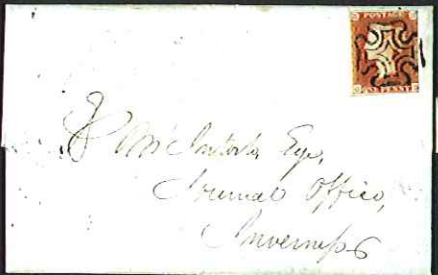 POSTAGE
ONE PENNY
McIntosh Esq,
Journal Office,
Inverness